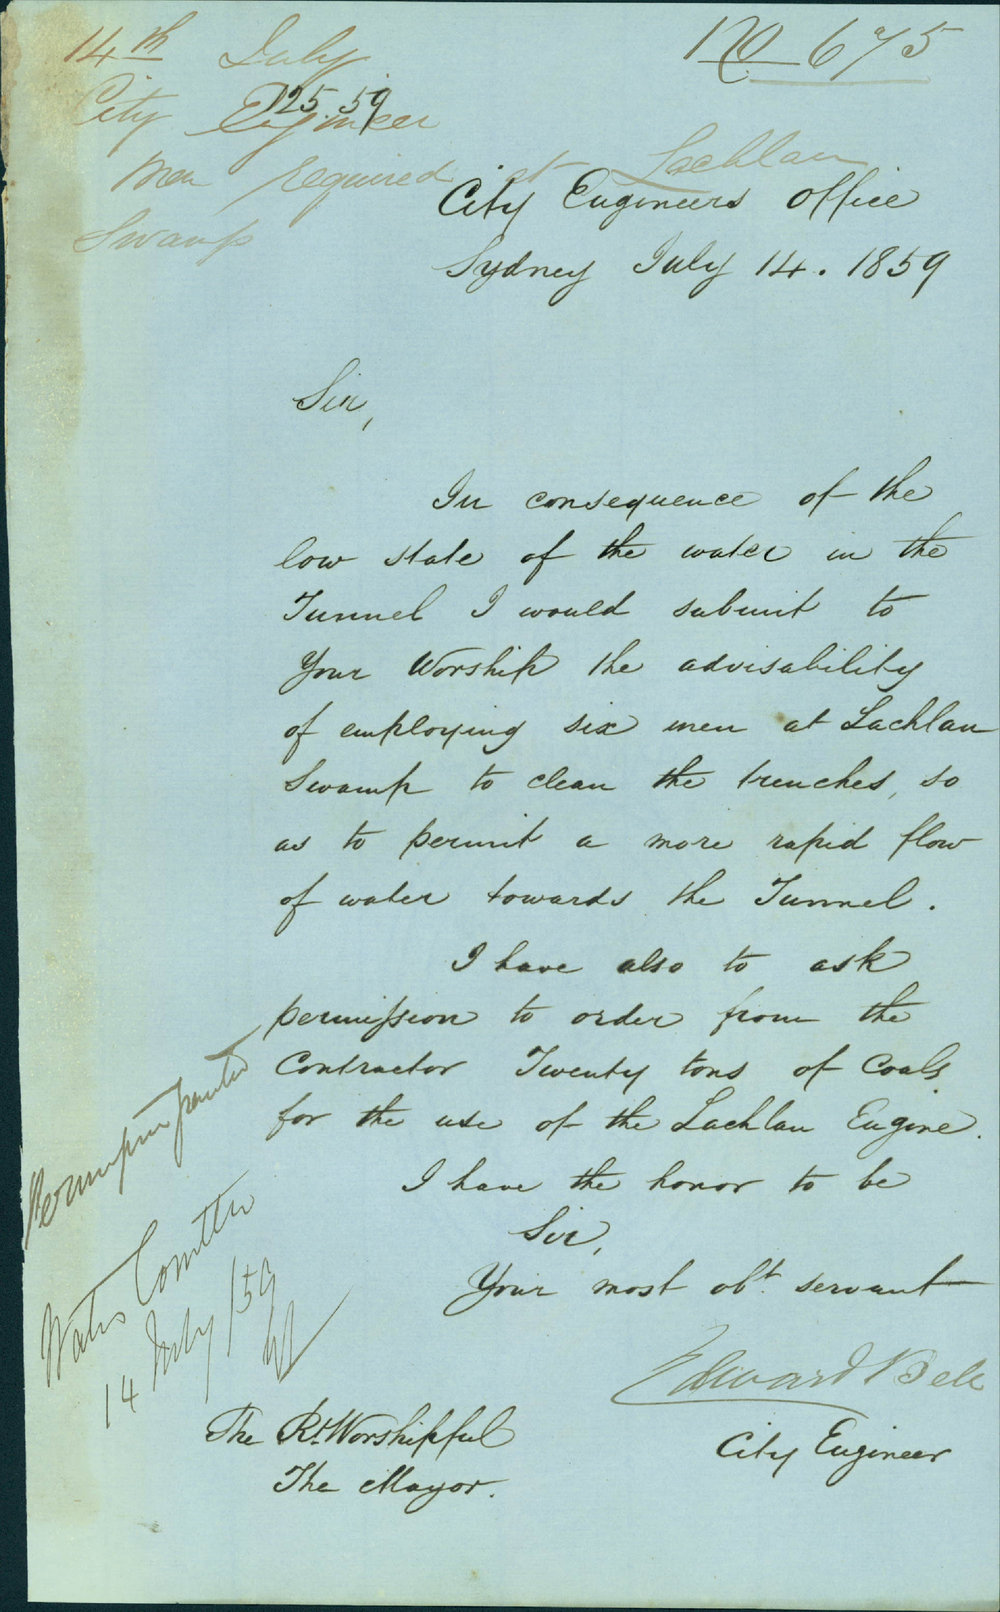 14th July
No 675
City Engineer
125.59
Men required at Lachlan
Swamp
City Engineers Office
Sydney July 14. 1859
Sir,
In consequence of the
low state of the water in the
Tunnel I would submit to
Your Worship the advisability
of employing six men at Lachlan
Swamp to clean the trenches, so
as to permit a more rapid flow
of water towards the Tunnel.
I have also to ask
permission to order from the
Contractor Twenty tons of Coals
for the use of the Lachlan Engine.
I have the honor to be
Sir,
Your most obt. servant
Edward Bell
City Engineer
The Rt. Worshipful
The Mayor.
Permission granted
Water Comttee
14 July /59